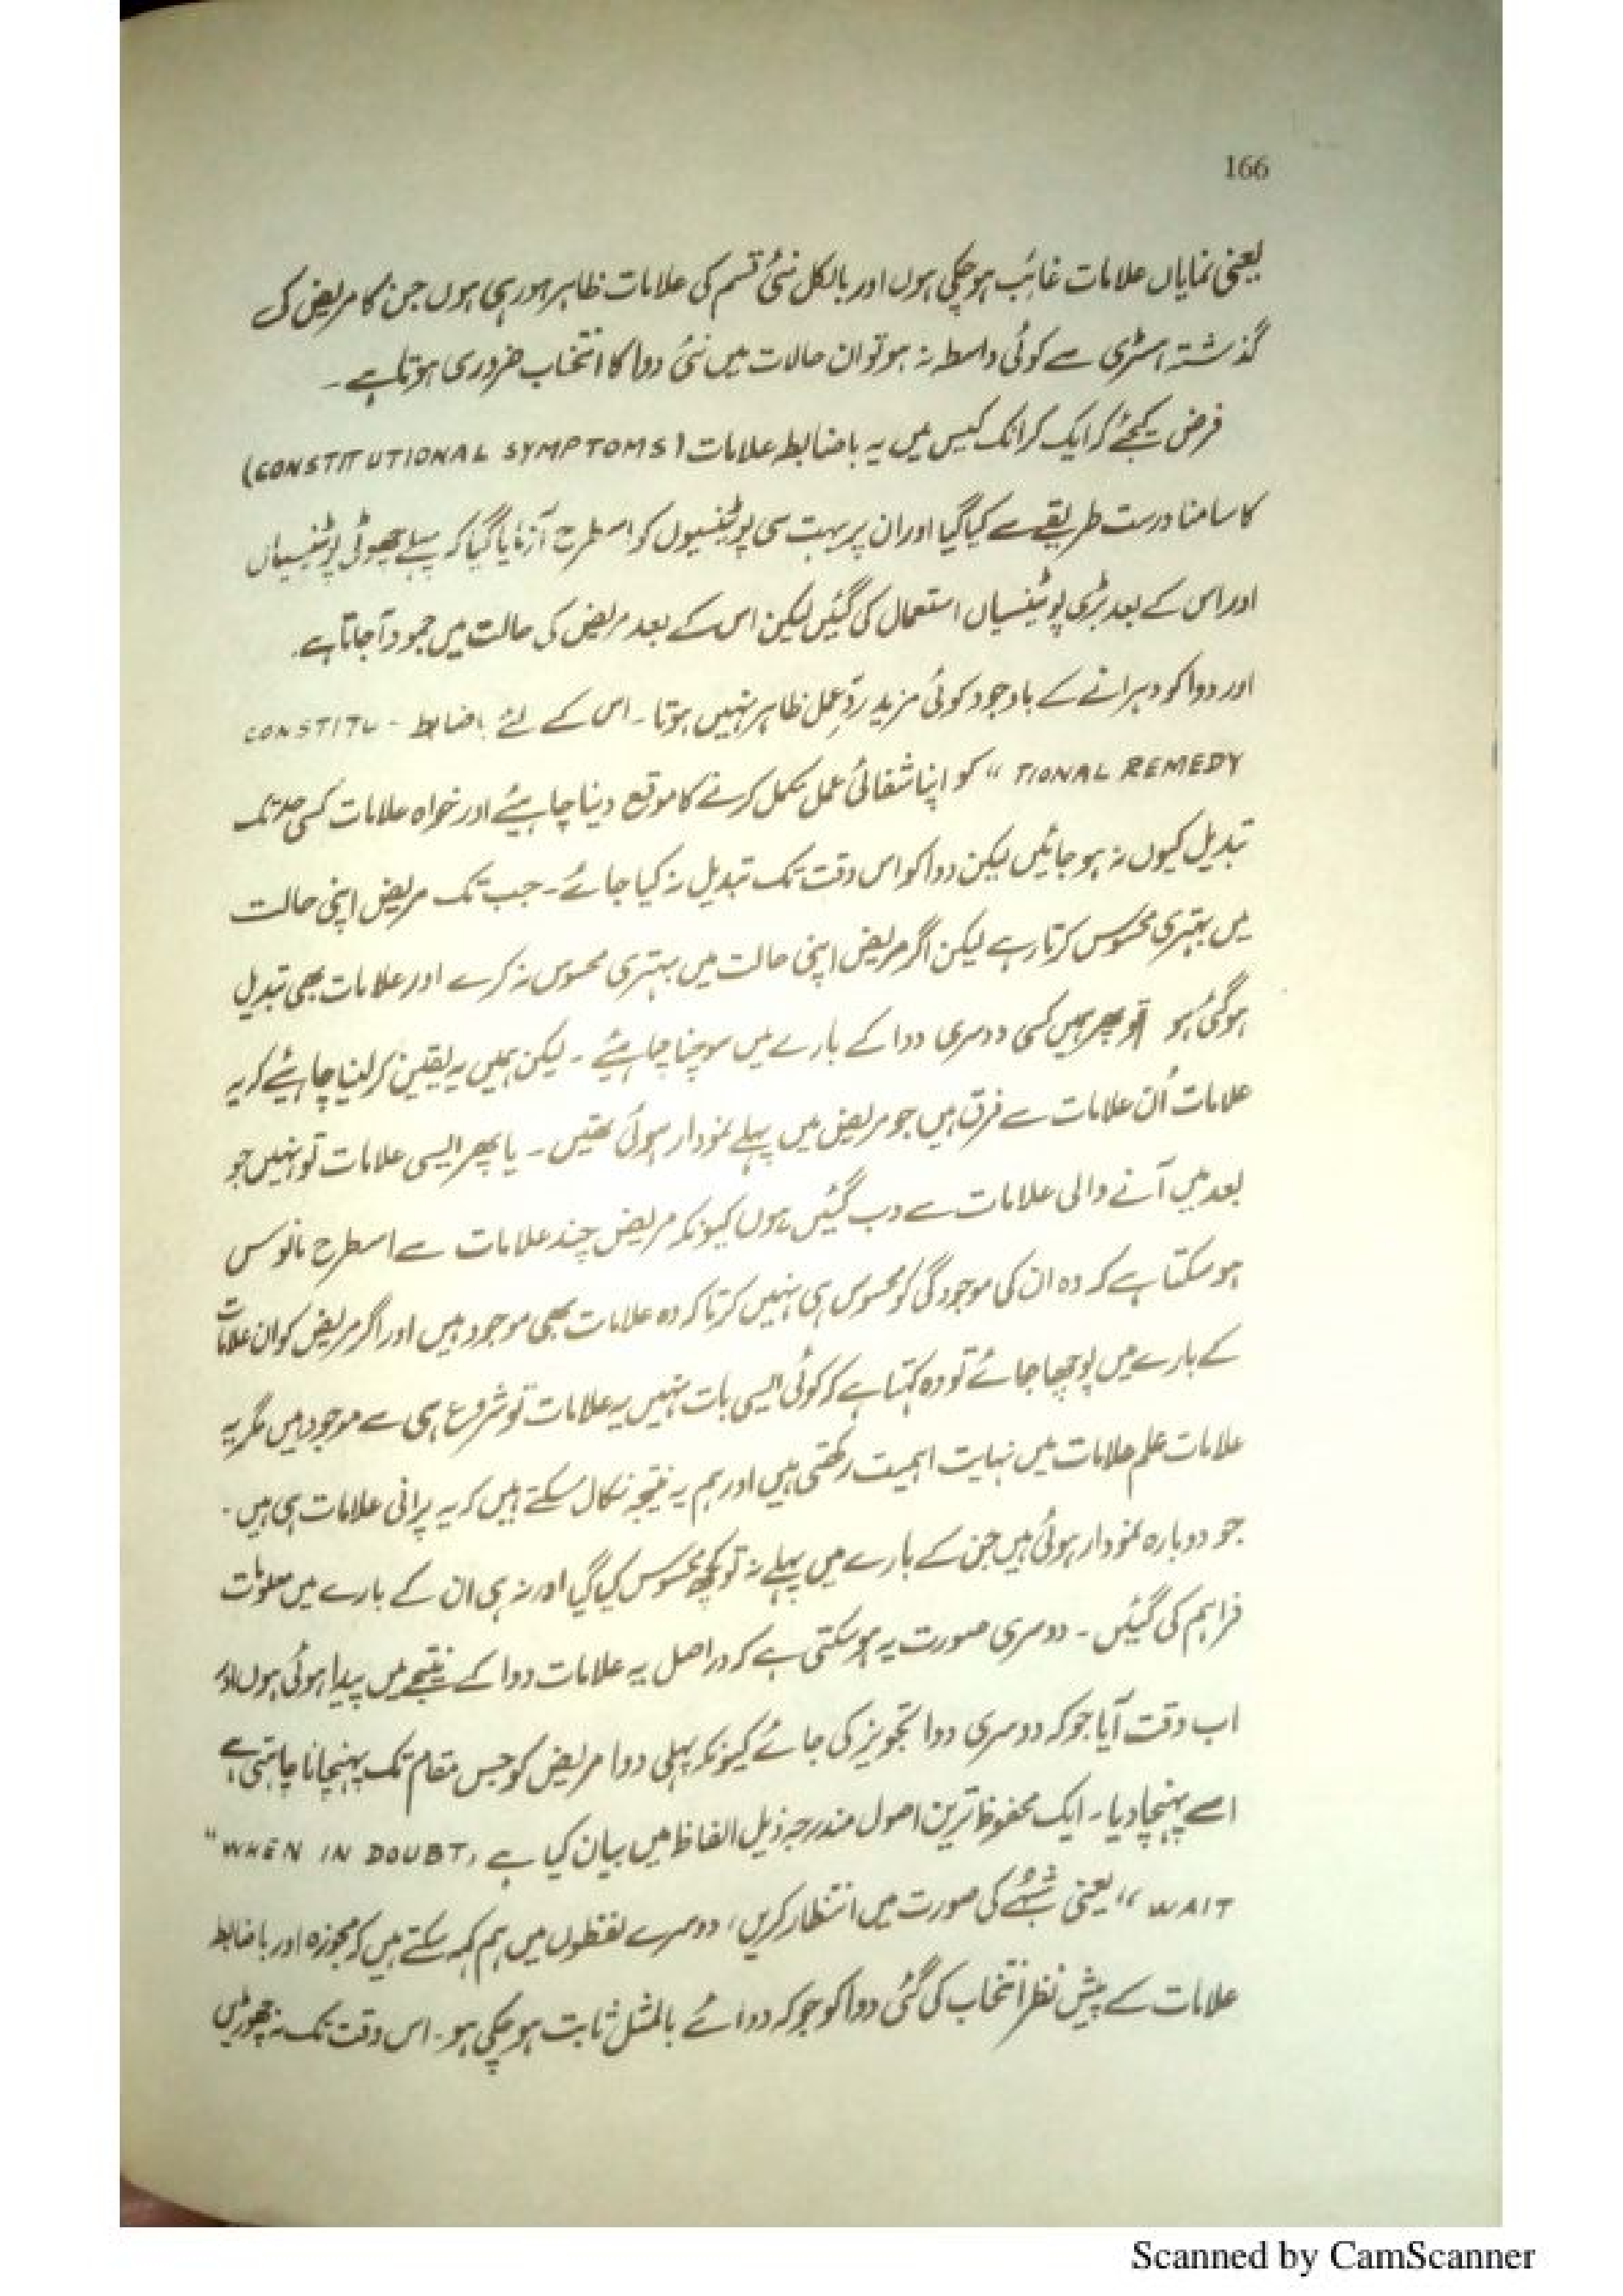 166
یعنی نمایاں علامات غائب ہوچکی ہوں اور بالکل نئی قسم کی علامات ظاہر ہورہی ہوں جن کا مریض کی
گذشتہ ہسٹری سے کوئی واسطہ نہ ہو تو ان حالات میں نئی دوا کا انتخاب ضروری ہوتا ہے۔
فرض کیجئے کہ ایک کرانک کیس میں یہ باضابطہ علامات (CONSTITUTIONAL SYMPTOMS)
کا سامنا درست طریقے سے کیا گیا اور ان پر بہت سی پوٹینسیوں کو اسطرح آزمایا گیا کہ پہلے چھوٹی پوٹینسیاں
اور اس کے بعد بڑی پوٹینسیاں استعمال کی گئیں لیکن اس کے بعد مریض کی حالت میں جمود آجاتا ہے۔
اور دوا کو دہرانے کے باوجود کوئی مزید ردِّعمل ظاہر نہیں ہوتا۔ اس کے لئے باضابطہ CONSTITU-
TIONAL REMEDY" کو اپنا شفائی عمل مکمل کرنے کا موقع دینا چاہیئے اور خواہ علامات کسی حد تک
تبدیل کیوں نہ ہو جائیں لیکن دوا کو اس وقت تک تبدیل نہ کیا جائے۔ جب تک مریض اپنی حالت
میں بہتری محسوس کرتا رہے لیکن اگر مریض اپنی حالت میں بہتری محسوس نہ کرے اور علامات بھی تبدیل
ہوگئی ہو تو پھر ہمیں کسی دوسری دوا کے بارے میں سوچنا چاہیئے۔ لیکن ہمیں یہ یقین کرلینا چاہیئے کہ یہ
علامات اُن علامات سے فرق ہیں جو مریض میں پہلے نمودار ہوئی تھیں۔ یا پھر ایسی علامات تو نہیں جو
بعد میں آنے والی علامات سے دب گئیں ہوں کیونکہ مریض چند علامات سے اسطرح مانوس
ہوسکتا ہے کہ وہ ان کی موجودگی کو محسوس ہی نہیں کرتا کہ وہ علامات بھی موجود ہیں اور اگر مریض کو ان علامات
کے بارے میں پوچھا جائے تو وہ کہتا ہے کہ کوئی ایسی بات نہیں یہ علامات تو شروع ہی سے موجود ہیں مگر یہ
علامات علم علامات میں نہایت اہمیت رکھتی ہیں اور ہم یہ نتیجہ نکال سکتے ہیں کہ یہ پرانی علامات ہی ہیں۔
جو دوبارہ نمودار ہوئی ہیں جن کے بارے میں پہلے نہ تو کچھ محسوس کیا گیا اور نہ ہی ان کے بارے میں معلومات
فراہم کی گئیں۔ دوسری صورت یہ ہوسکتی ہے کہ دراصل یہ علامات دوا کے نتیجے میں پیدا ہوئی ہوں اور
اب وقت آیا جو کہ دوسری دوا تجویز کی جائے کیونکہ پہلی دوا مریض کو جس مقام تک پہنچانا چاہتی ہے
اسے پہنچا دیا۔ ایک محفوظ ترین اصول مندرجہ ذیل الفاظ میں بیان کیا ہے "WHEN IN DOUBT,
WAIT" یعنی شبہے کی صورت میں انتظار کریں، دوسرے لفظوں میں ہم کہہ سکتے ہیں کہ مجوزہ اور باضابطہ
علامات کے پیش نظر انتخاب کی گئی دوا کو جو کہ دوائے بالمثل ثابت ہوچکی ہو۔ اس وقت تک نہ چھوڑیں
Scanned by CamScanner